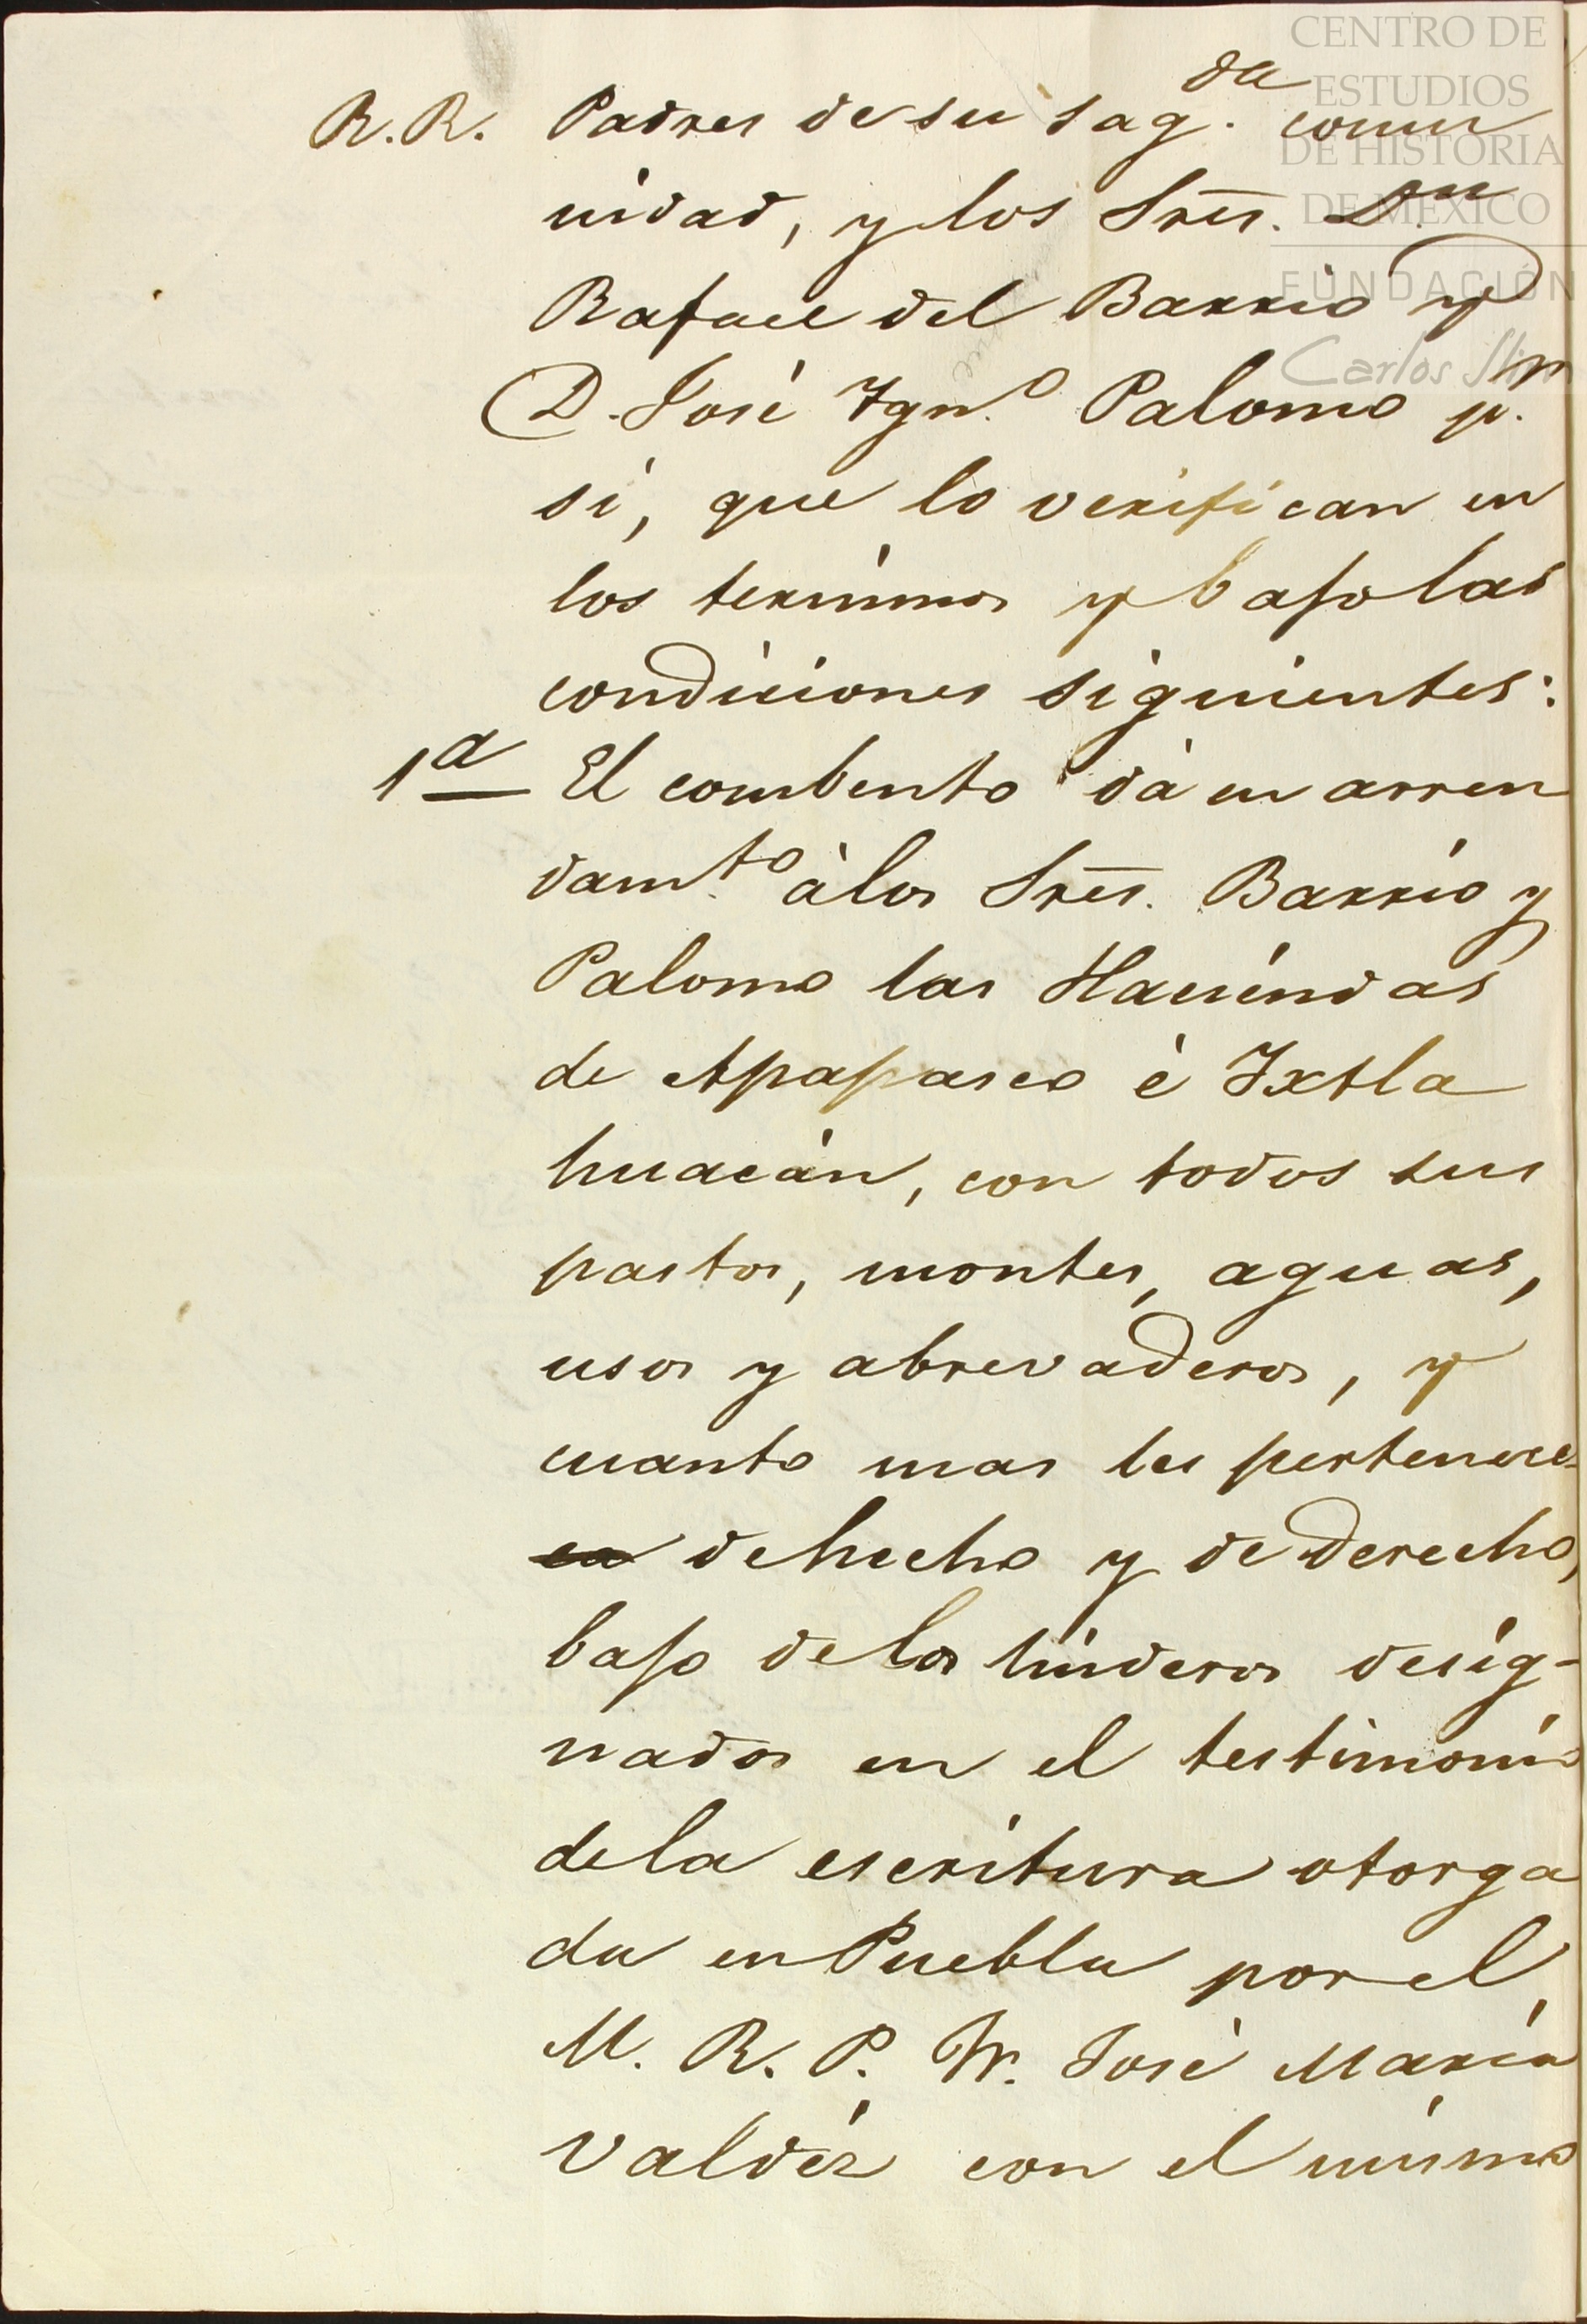 CENTRO DE
ESTUDIOS
DE HISTORIA
DE MÉXICO
FUNDACIÓN
Carlos Slim
R. R. Padres de su sag.da comu
nidad, y los Sres. Dn
Rafael del Barrio y
D. José Ygn.o Palomo p.r
sí, que lo verifican en
los términos y bajo las
condiciones siguientes:
1a El combento dá en arren
dam.to á los Sres. Barrio y
Palomo las Haciendas
de Apapasco é Ixtla
huacán, con todos sus
pastos, montes, aguas,
usos y abrevaderos, y
cuanto mas les pertenece
de hecho y de derecho,
bajo de los linderos desig-
nados en el testimonio
de la escritura otorga
da en Puebla por el
M. R. P. Fr. José María
Valdéz con el mismo